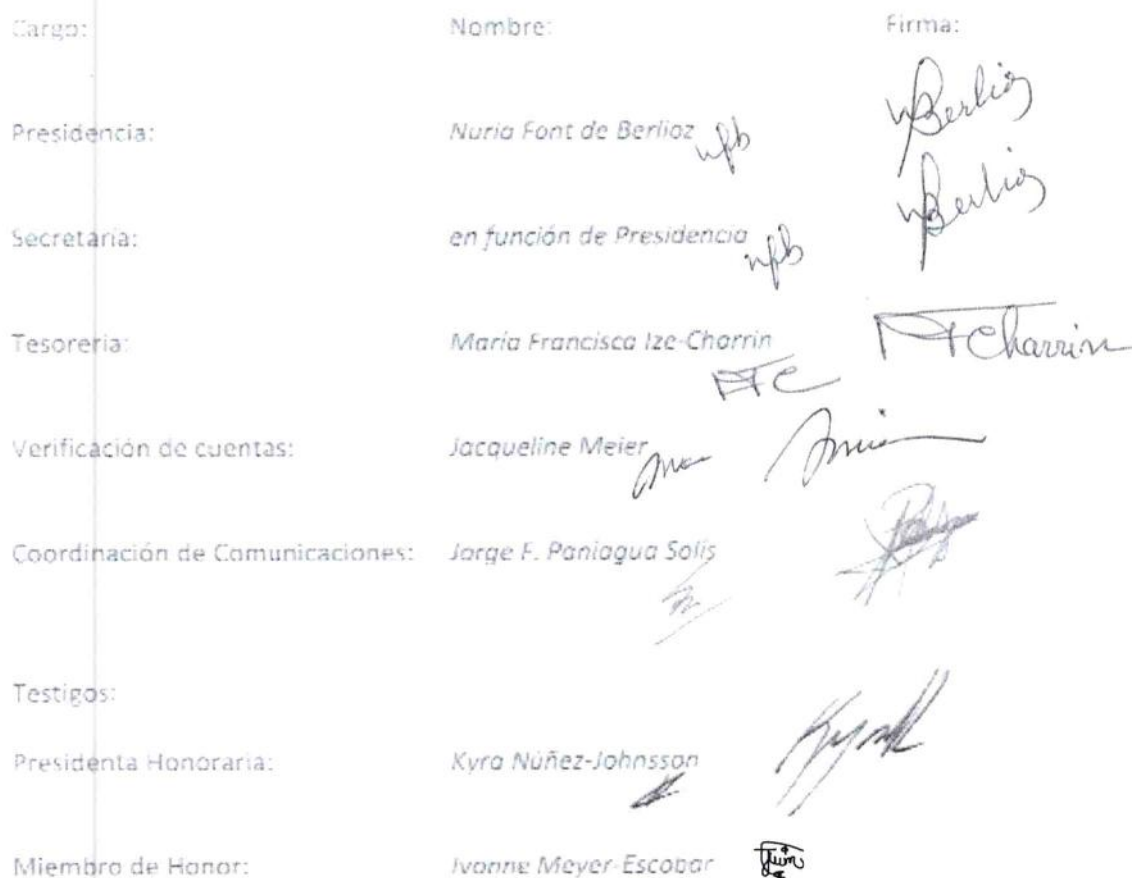 Cargo: Nombre: Firma:
Presidencia: Nuria Font de Berlioz nfb NBerlioz
Secretaria: en función de Presidencia nfb NBerlioz
Tesorería: María Francisca Ize-Charrin FTC FTCharrin
Verificación de cuentas: Jacqueline Meier
Coordinación de Comunicaciones: Jorge F. Paniagua Solís
Testigos:
Presidenta Honoraria: Kyra Núñez-Johnsson
Miembro de Honor: Ivonne Meyer-Escobar